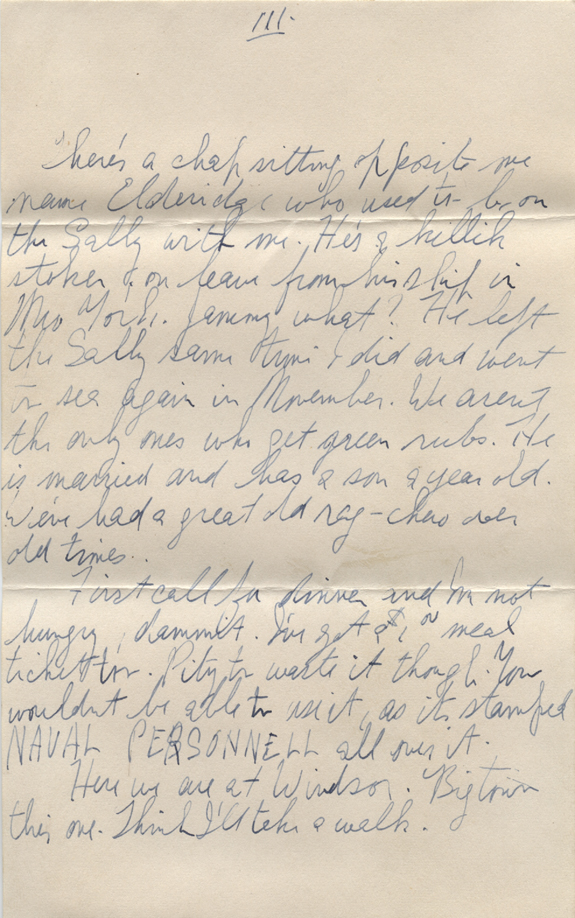 III.
There's a chap sitting opposite me
name Elderidge who used to be on
the Sally with me. He's a killick
stoker, & on leave from his ship in
New York. Jammy what? He left
the Sally same time I did and went
to sea again in November. We aren't
the only ones who get green rubs. He
is married and has a son a year old.
We've had a great old rag-chew over
old times..
First call for dinner and I'm not
hungry, dammit. I've got a $1.00 meal
ticket too. Pity to waste it though. You
wouldn't be able to use it, as its stamped
NAVAL PERSONNELL all over it.
Here we are at Windsor. Big town
this one. Think I'll take a walk.